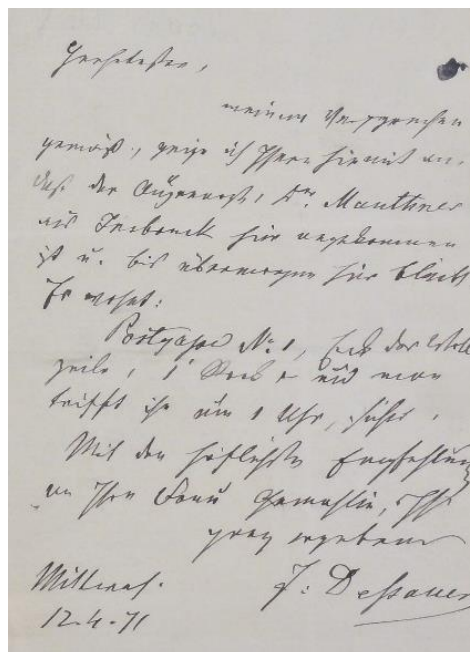 Hochgeehrtester,
meinem Versprechen
gemäß, zeige ich Ihnen hiermit an,
daß der Augenarzt, Dr. Mauthner
aus Insbruck hier angekommen
ist u. bis übermorgen hier bleibt
Er wohnt:
Postgasse No. 1, Eck der Woll
zeile, 1 Stock und man
trifft ihn um 1 Uhr, sicher.
Mit den höflichsten Empfehlungen
an Ihre Frau Gemahlin, Ihr
ganz ergebener
Mittwoch. J. Dessauer
12.4.71